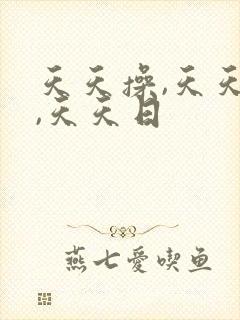 天天操,天天
,天天日
燕七愛喫鱼